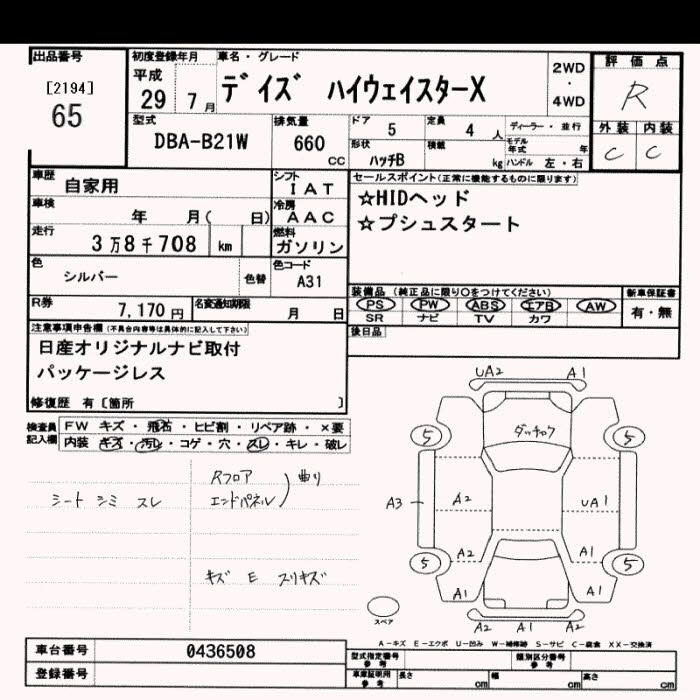 出品番号
[2194]
65
初度登録年月
平成
29 7 月
車名・グレード
デイズ ハイウェイスターX
2WD
・
4WD
評価点
R
外装 内装
C C
型式
DBA-B21W
排気量
660
CC
ドア 5
定員 4 人
ディーラー・並行
形状 ハッチB
積載 kg
モデル年式 年
ハンドル 左・右
車歴 自家用
シフト IAT
セールスポイント(正常に機能するものに限ります)
☆HIDヘッド
☆プシュスタート
車検 年 月( 日)
冷房 AAC
走行 3万8千708 km
燃料 ガソリン
色 シルバー
色替
色コード A31
R券 7,170円
名変通知期限 月 日
装備品 (純正品に限り○をつけてください)
PS PW ABS エアB AW
SR ナビ TV カワ
新車保証書
有・無
後日品
注意事項申告欄(不具合内容等は具体的に記入して下さい)
日産オリジナルナビ取付
パッケージレス
修復歴 有[箇所 ]
検査員記入欄
FW キズ・飛石・ヒビ割・リペア跡・×要
内装 キズ・汚レ・コゲ・穴・スレ・キレ・破レ
シート シミ スレ
Rフロア
エンドパネル
曲り
キズ E スリキズ
UA2 A1
5 5
ダッチャク
A3 A2 UA1
A2 A1
5 5
A1 A1
A2 A1 A2
スペア
A-キズ E-エクボ U-凹み W-補修跡 S-サビ C-腐食 XX-交換済
車台番号 0436508
登録番号
型式指定番号 参考
類別区分番号 参考
車庫証明用 参考
長さ cm
幅 cm
高さ cm